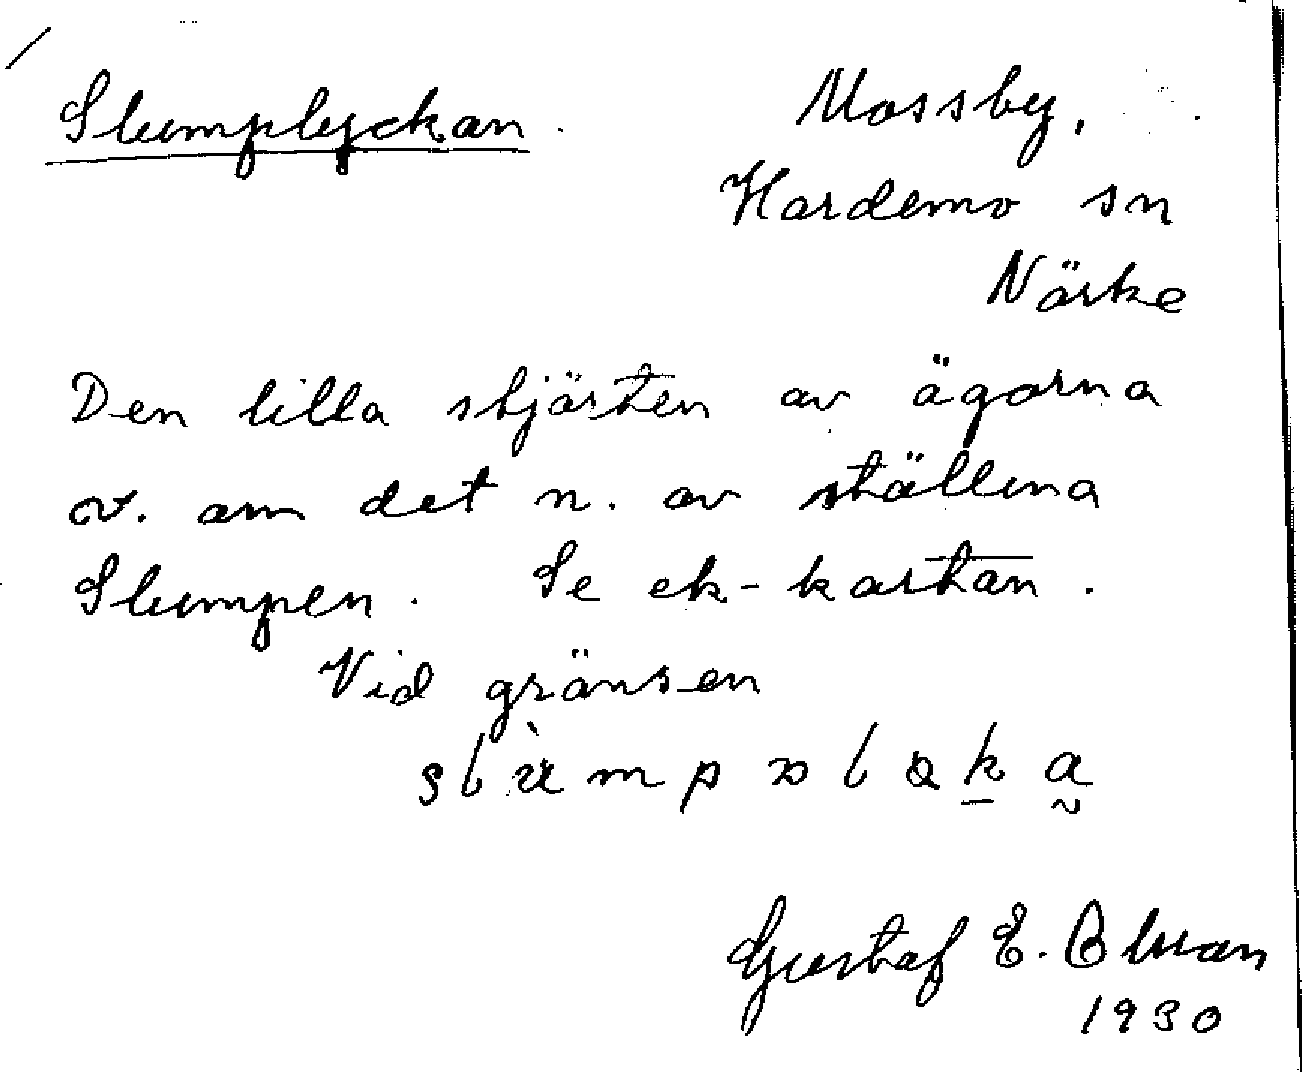 Slumplyckan.
Mossby,
Hardemo sn
Närke
Den lilla stjärten av ägorna
v. om det n. av ställena
Slumpen. Se ek-kartan.
Vid gränsen
Gustaf E.
1930